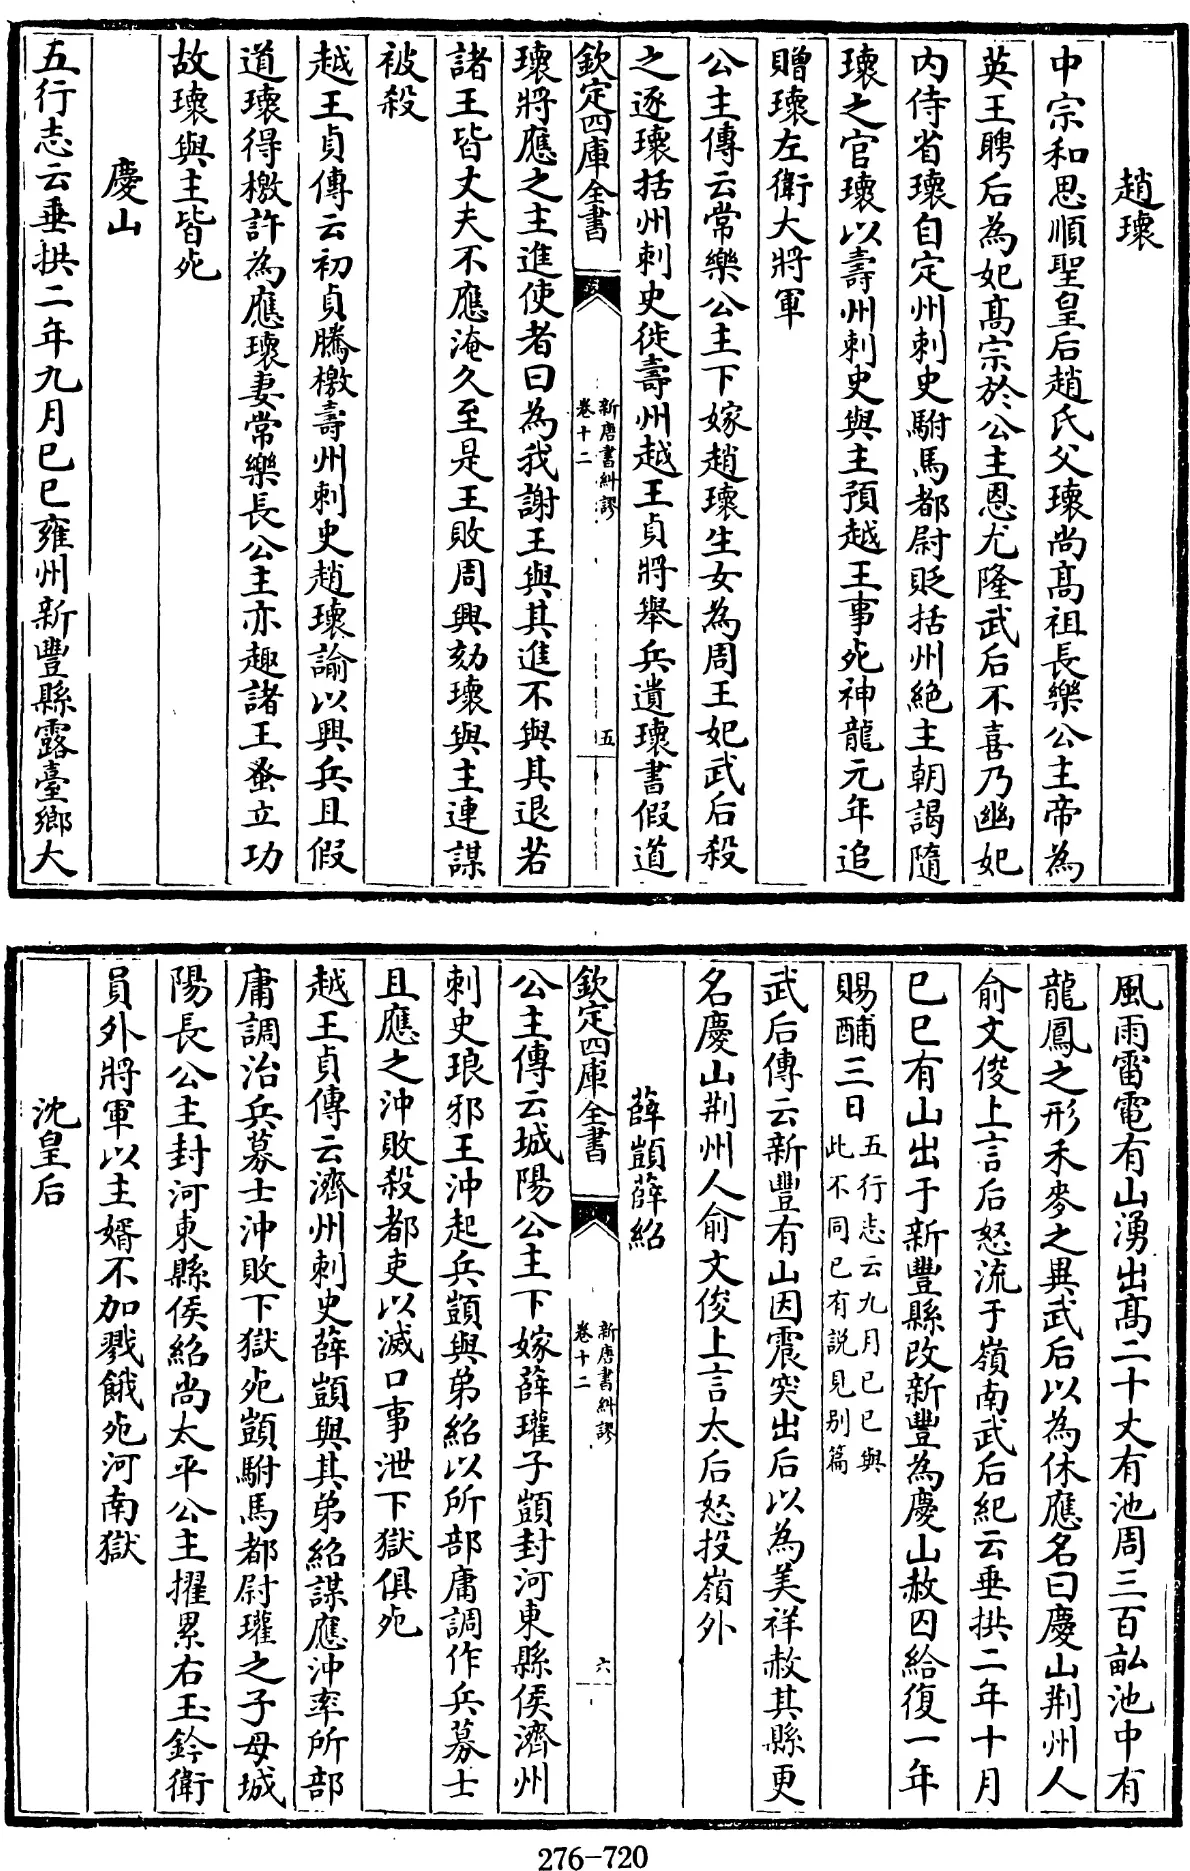 趙瓌
中宗和思順聖皇后趙氏父瓌尚髙祖長樂公主帝為
英王聘后為妃髙宗於公主恩尤隆武后不喜乃幽妃
内侍省瓌自定州刺史駙馬都尉貶括州絶主朝謁隨
瓌之官瓌以壽州刺史與主預越王事死神龍元年追
贈瓌左衛大將軍
公主傳云常樂公主下嫁趙瓌生女為周王妃武后殺
之逐瓌括州刺史徙壽州越王貞將舉兵遺瓌書假道
欽定四庫全書
新唐書糾謬
卷十二
五
瓌將應之主進使者曰為我謝王與其進不與其退若
諸王皆丈夫不應淹久至是王敗周興劾瓌與主連謀
被殺
越王貞傳云初貞騰檄壽州刺史趙瓌諭以興兵且假
道瓌得檄許為應瓌妻常樂長公主亦趣諸王蚤立功
故瓌與主皆死
慶山
五行志云垂拱二年九月己巳雍州新豐縣露臺鄉大
風雨雷電有山湧出髙二十丈有池周三百畝池中有
龍鳳之形禾麥之異武后以為休應名曰慶山荆州人
俞文俊上言后怒流于嶺南武后紀云垂拱二年十月
己巳有山出于新豐縣改新豐為慶山赦囚給復一年
賜酺三日五行志云九月己巳與
此不同已有説見别篇
武后傳云新豐有山因震突出后以為美祥赦其縣更
名慶山荆州人俞文俊上言太后怒投嶺外
薛顗薛紹
欽定四庫全書
新唐書糾謬
卷十二
六
公主傳云城陽公主下嫁薛瓘子顗封河東縣侯濟州
刺史琅邪王沖起兵顗與弟紹以所部庸調作兵募士
且應之沖敗殺都吏以滅口事泄下獄俱死
越王貞傳云濟州刺史薛顗與其弟紹謀應沖率所部
庸調治兵募士沖敗下獄死顗駙馬都尉瓘之子母城
陽長公主封河東縣侯紹尚太平公主擢累右玉鈐衛
員外將軍以主婿不加戮餓死河南獄
沈皇后
276-720